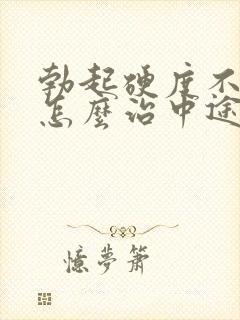 勃起硬度不
怎麼治中途
憶夢簫